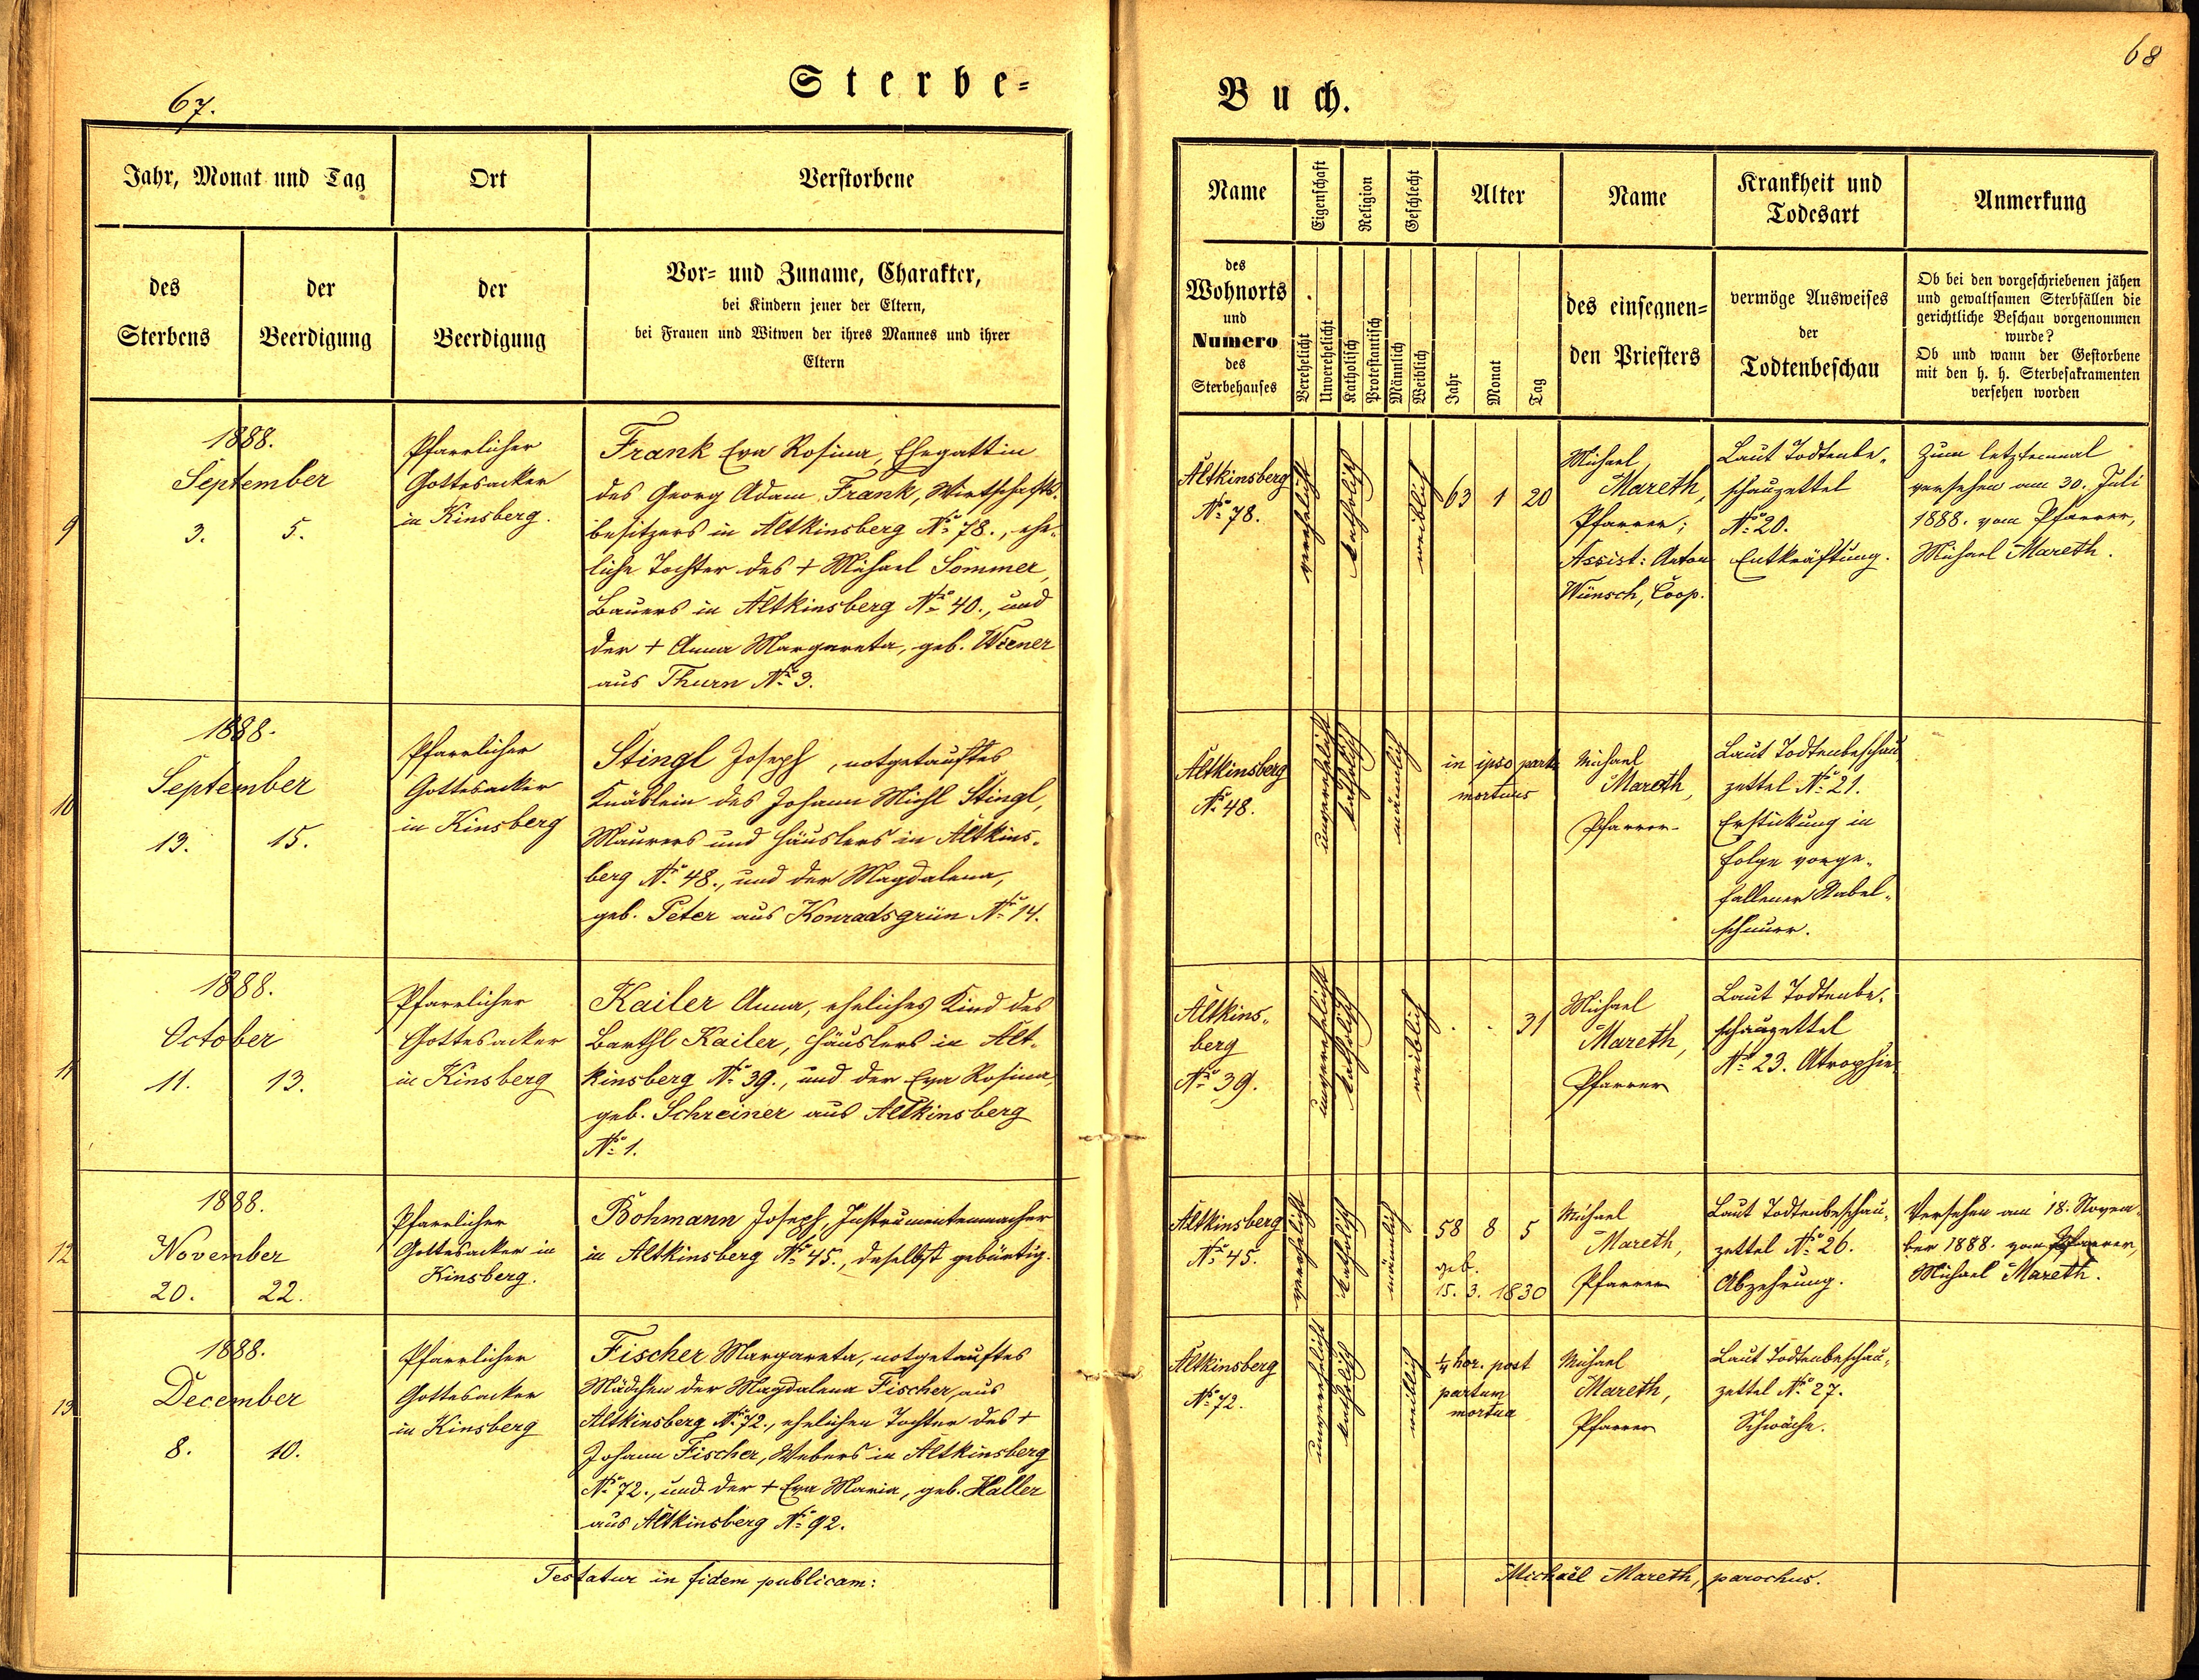 67.
Sterbe=
Jahr, Monat und Tag
Ort
Verstorbene
des
Sterbens
der
Beerdigung
der
Beerdigung
Vor= und Zuname, Charakter,
bei Kindern jener der Eltern,
bei Frauen und Witwen der ihres Mannes und ihrer
Eltern
9
1888.
September
3. 5.
Pfarrlicher
Gottesacker
in Kinsberg.
Frank Eva Rosina, Ehegattin
des Georg Adam Frank, Wirtschafts-
besitzers in Altkinsberg No. 78., ehe-
liche Tochter des + Michael Sommer,
Bauers in Altkinsberg No. 40., und
der + Anna Margareta, geb. Wiener
aus Thurn No. 3.
10
1888.
September
13. 15.
Pfarrlicher
Gottesacker
in Kinsberg
Stingl Joseph, notgetauftes
Knäblein des Johann Michl Stingl,
Maurers und Häuslers in Altkins-
berg No. 48., und der Magdalena,
geb. Peter aus Konradsgrün No. 14.
11
1888.
October
11. 13.
Pfarrlicher
Gottesacker
in Kinsberg
Kailer Anna, eheliches Kind des
Barthl Kailer, Häuslers in Alt-
kinsberg No. 39., und der Eva Rosina,
geb. Schreiner aus Altkinsberg
No. 1.
12
1888.
November
20. 22.
Pfarrlicher
Gottesacker in
Kinsberg.
Bohmann Joseph, Instrumentenmacher
in Altkinsberg No. 45., daselbst gebürtig.
13
1888.
December
8. 10.
Pfarrlicher
Gottesacker
in Kinsberg
Fischer Margareta, notgetauftes
Mädchen der Magdalena Fischer, aus
Altkinsberg No. 72., ehelichen Tochter des +
Johann Fischer, Webers in Altkinsberg
No. 72., und der + Eva Maria, geb. Haller
aus Altkinsberg No. 92.
Testatur in fidem publicam:
68
Buch.
Name
Eigenschaft
Religion
Geschlecht
Alter
Name
Krankheit und
Todesart
Anmerkung
des
Wohnorts
und
Numero
des
Sterbehauses
Verehelicht
Unverehelicht
Katholisch
Protestantisch
Männlich
Weiblich
Jahr
Monat
Tag
des einsegnen=
den Priesters
vermöge Ausweises
der
Todtenbeschau
Ob bei den vorgeschriebenen jähen
und gewaltsamen Sterbfällen die
gerichtliche Beschau vorgenommen
wurde?
Ob und wann der Gestorbene
mit den h. h. Sterbesakramenten
versehen worden
Altkinsberg
No. 78.
verehelicht
katholisch
weiblich
63 1 20
Michael
Mareth,
Pfarrer;
Assist: Anton
Wünsch, Coop.
Laut Todtenbe-
schauzettel
No. 20.
Entkräftung.
Zum letztenmal
versehen am 30. Juli
1888. vom Pfarrer,
Michael Mareth.
Altkinsberg
No. 48.
unverehelicht
katholisch
männlich
in ipso partu
mortuus
Michael
Mareth,
Pfarrer
Laut Todtenbeschau-
zettel No. 21.
Erstickung in
Folge vorge-
fallener Nabel-
schnur.
Altkins-
berg
No. 39.
unverehelicht
katholisch
weiblich
. . 31
Michael
Mareth,
Pfarrer
Laut Todtenbe-
schauzettel
No. 23. Atrophie
Altkinsberg
No. 45.
verehelicht
katholisch
männlich
58 8 5
geb.
15. 3. 1830
Michael
Mareth,
Pfarrer
Laut Todtenbeschau-
zettel No. 26.
Abzehrung.
Versehen am 18. Novem-
ber 1888. vom Pfarrer,
Michael Mareth.
Altkinsberg
No. 72.
unverehelicht
katholisch
weiblich
1/4 hor. post
partum
mortua
Michael
Mareth,
Pfarrer
Laut Todtenbeschau-
zettel No. 27.
Schwäche.
Michaël Mareth, parochus.